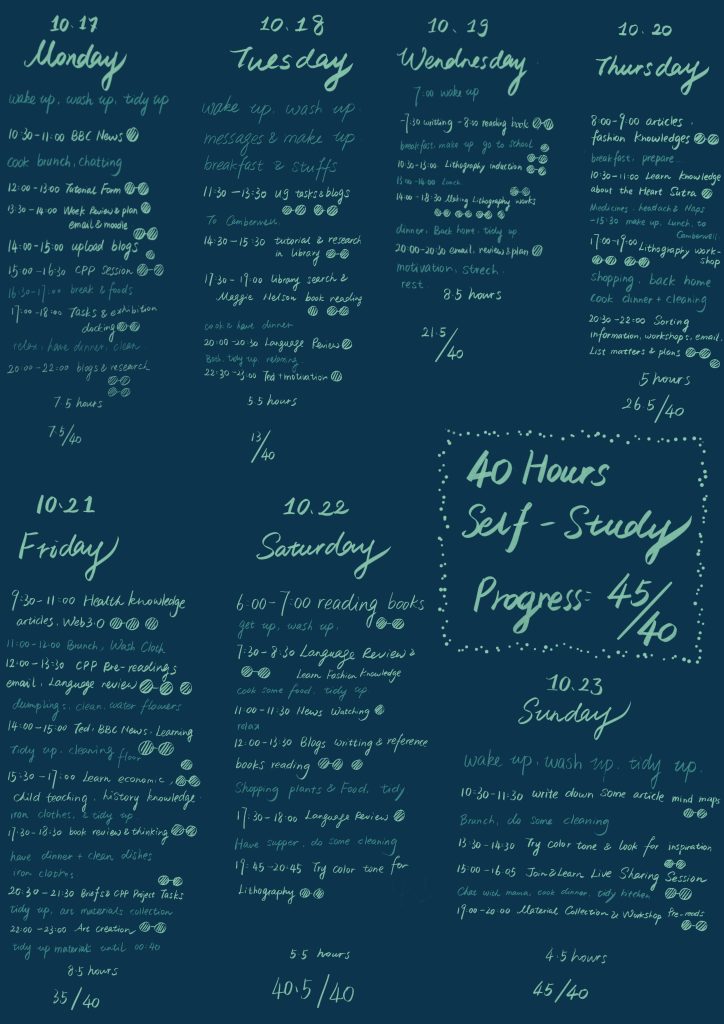 10.17
Monday
wake up, wash up, tidy up
10:30-11:00 BBC News
cook brunch, chatting
12:00-13:00 Tutorial Form
13:30-14:00 Week Review & plan
email & moodle
14:00-15:00 upload blogs
15:00-16:30 CPP Session
16:30-17:00 break & foods
17:00-18:00 Tasks & exhibition
relax, have dinner, clean
20:00-22:00 blogs & research
7.5 hours
7.5/40
10.18
Tuesday
wake up, wash up
messages & make up
breakfast & stuffs
11:30-13:30 ug tasks & blogs
To Camberwell
14:30-15:30 tutorial & research
in library
17:30-19:00 library search &
Maggie Nelson book reading
cook & have dinner
20:00-20:30 Language Review
Bath, tidy up, relaxing
22:30-23:00 Ted + motivation
5.5 hours
13/40
10.19
Wendnesday
7:00 wake up
-7:30 writting -8:00 reading book
breakfast, make up, go to school
10:30-13:00 Lithography induction
13:00-14:00 Lunch
14:00-18:30 Making Lithography works
dinner, Back home, tidy up
20:00-20:30 email, review & plan
motivation, strech,
rest.
8.5 hours
21.5/40
10.20
Thursday
8:00-9:00 articles,
fashion knowledges
breakfast, prepare
10:30-11:00 Learn knowledge
about the Heart Sutra
Medicines, headach & Naps
-15:30 make up, lunch, to
Camberwell
17:00-19:00 Lithography work-
shop
Shopping, back home
cook dinner + cleaning
20:30-22:00 Sorting
information, workshops, email.
List matters & plans
5 hours
26.5/40
40 Hours
Self-Study
Progress: 45/40
10.21
Friday
9:30-11:00 Health knowledge
articles, Web3.0
11:00-12:00 Brunch, Wash Cloth
12:00-13:30 CPP Pre-readings
email, Language review
dumplings, clean, water flowers
14:00-15:00 Ted, BBC News, Learning
Tidy up, cleaning floor
15:30-17:00 Learn economic,
child teaching, history knowledge.
iron clothes, & tidy up
17:30-18:30 book review & thinking
have dinner + clean dishes
iron clothes
20:30-21:30 Briefs & CPP Project Tasks
tidy up, art materials collection
22:00-23:00 Art creation
tidy up materials until 00:40
8.5 hours
35/40
10.22
Saturday
6:00-7:00 reading books
get up, wash up,
7:30-8:30 Language Review &
Learn Fashion Knowledge
cook some food, tidy up
11:00-11:30 News Watching
relax
12:00-13:30 Blogs writting & reference
books reading
Shopping plants & Food, tidy
17:30-18:00 Language Review
Have supper, do some cleaning
19:45-20:45 Try color tone for
Lithography
5.5 hours
40.5/40
10.23
Sunday
wake up, wash up, tidy up.
10:30-11:30 write down some article mind maps
Brunch, do some cleaning
13:30-14:30 Try color tone & look for inspiration
15:00-16:05 Join & Learn Live Sharing Session
Chat with mama, cook dinner, tidy kitchen
19:00-20:00 Material Collection & Workshop Pre-reads
4.5 hours
45/40